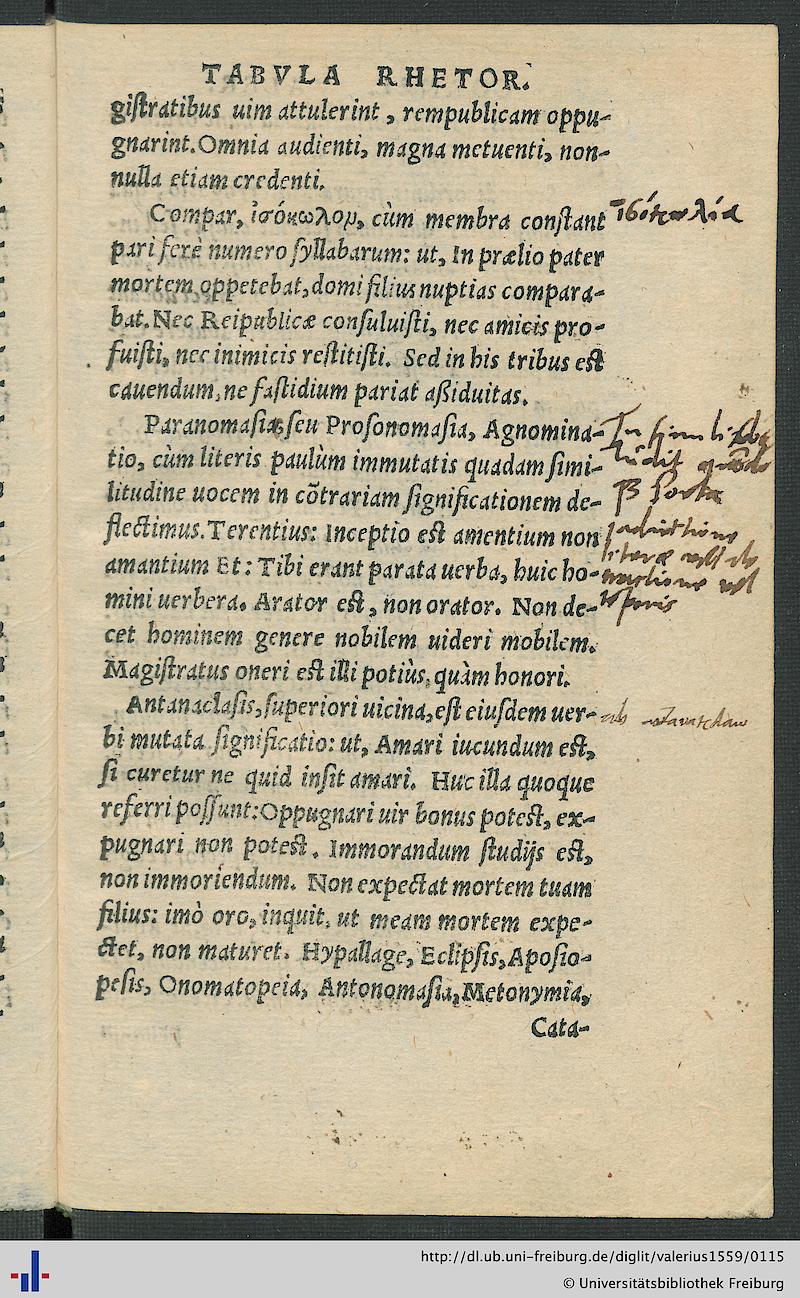 TABVLA RHETOR.
giſtratibus uim attulerint, rempublicam oppu-
gnarint. Omnia audienti, magna metuenti, non-
nulla etiam credenti.
Compar, ἰσόκωλον, cùm membra conſtant
pari ferè numero ſyllabarum: ut, In prælio pater
mortem oppetebat, domi filius nuptias compara-
bat. Nec Reipublicæ conſuluiſti, nec amicis pro-
fuiſti, nec inimicis reſtitiſti. Sed in his tribus eſt
cauendum, ne faſtidium pariat aßiduitas.
Paranomaſia, ſeu Proſonomaſia, Agnomina-
tio, cùm literis paulùm immutatis quadam ſimi-
litudine uocem in cõtrariam ſignificationem de-
flectimus. Terentius: Inceptio eſt amentium non
amantium Et: Tibi erant parata uerba, huic ho-
mini uerbera. Arator eſt, non orator. Non de-
cet hominem genere nobilem uideri mobilem.
Magiſtratus oneri eſt illi potiùs, quàm honori.
Antanaclaſis, ſuperiori uicina, eſt eiuſdem uer-
bi mutata ſignificatio: ut, Amari iucundum eſt,
ſi curetur ne quid inſit amari. Huc illa quoque
referri poſſunt: Oppugnari uir bonus poteſt, ex-
pugnari non poteſt. Immorandum ſtudijs eſt,
non immoriendum. Non expectat mortem tuam
filius: imò oro, inquit, ut meam mortem expe-
ctet, non maturet. Hypallage, Eclipſis, Apoſio-
peſis, Onomatopeia, Antonomaſia, Metonymia,
Cata-
http://dl.ub.uni-freiburg.de/diglit/valerius1559/0115
© Universitätsbibliothek Freiburg